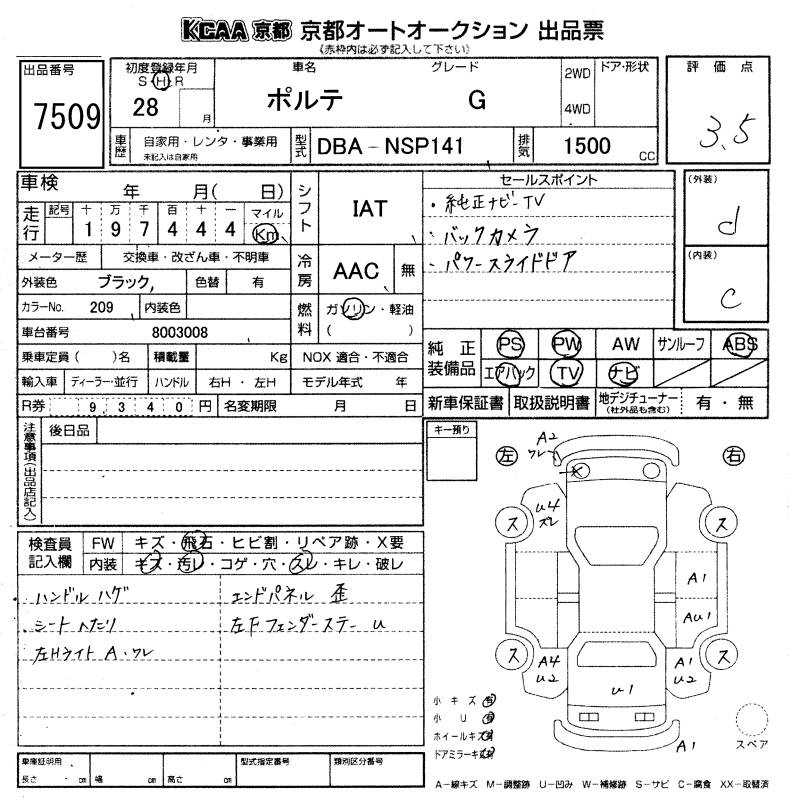 KCAA 京都 京都オートオークション 出品票
《赤枠内は必ず記入して下さい》
出品番号
7509
初度登録年月
S・H・R
28
月
車名
ポルテ
グレード
G
2WD
4WD
ドア・形状
評価点
3.5
車歴
自家用・レンタ・事業用
未記入は自家用
型式
DBA-NSP141
排気
1500
CC
車検 年 月( 日)
走行
記号 十 万 千 百 十 一 マイル
1 9 7 4 4 4 Km
メーター歴 交換車・改ざん車・不明車
外装色 ブラック 色替 有
カラーNo. 209 内装色
車台番号 8003008
乗車定員( )名 積載量 Kg
輸入車 ディーラー・並行 ハンドル 右H・左H
R券 9,340円 名変期限 月 日
シフト
IAT
冷房
AAC
無
燃料
ガソリン・軽油
( )
NOX 適合・不適合
モデル年式 年
セールスポイント
・純正ナビ-TV
・バックカメラ
・パワースライドドア
(外装)
d
(内装)
c
純正装備品
PS PW AW サンルーフ ABS
エアバック TV ナビ
新車保証書 取扱説明書 地デジチューナー
(社外品も含む) 有・無
注意事項(出品店記入)
後日品
キー預り
検査員記入欄
FW キズ・飛石・ヒビ割・リペア跡・X要
内装 キズ・汚レ・コゲ・穴・スレ・キレ・破レ
ハンドル ハゲ
シート へたり
左Hライト A・ワレ
エンドパネル 歪
左F フェンダーステー u
左
右
A2
ワレ
u4
ズレ
ス
ス
A1
Au1
ス
A4
u2
A1
u2
ス
u1
A1
小キズ 有
小U 有
ホイールキズ 有
ドアミラーキズ
スペア
車庫証明用
長さ cm 幅 cm 高さ cm
型式指定番号
類別区分番号
A-線キズ M-調整跡 U-凹み W-補修跡 S-サビ C-腐食 XX-取替済